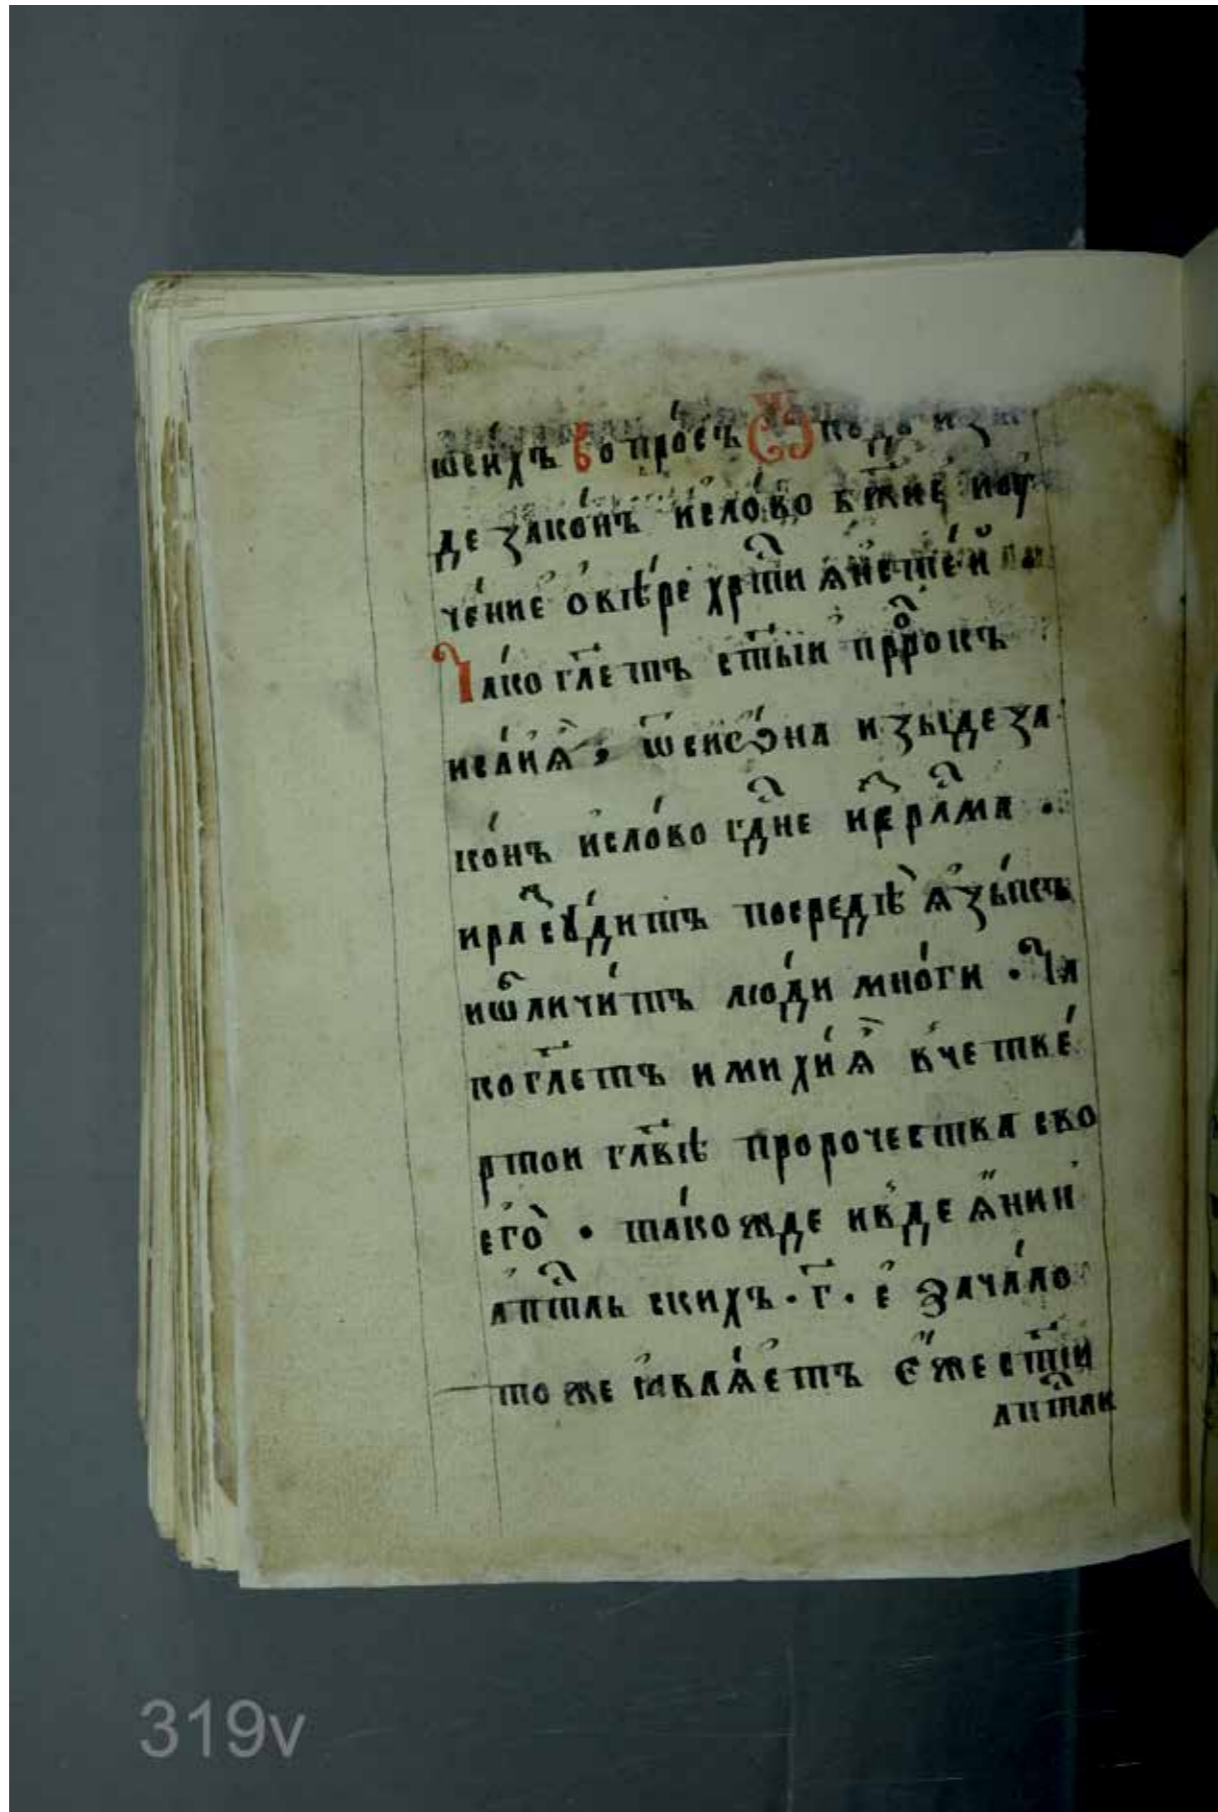 шеихъ вопро́съ ѿкодꙋ изы
де зако́нъ исло́во бж҃ие иоу
че́ние ѡвѣ́ре хрⷭ҇тиѧ́нстей .
Ꙗ́ко гл҃етъ ст҃ыи прⷪ҇рокъ
исаиѧ ; ѿсио́на изы́де за
ко́нъ исло́во гдⷭ҇не изⸯерⷭ҇лма .
ираꙁсꙋ́дитъ посредѣ̀ ѧзы́къ
иѡбличи́тъ лю́ди мно́ги . Ꙗ
ко гл҃етъ имихи́ѧ вчетве́
ртои главѣ̀ пророчества сво
его̀ . та́кожде ивдеѧнии
апⷭ҇тльскихъ . г҃ . е зача́ло
тоже ꙗвлѧ́етъ е҆́же ст҃іи
апⷭ҇тли
319v